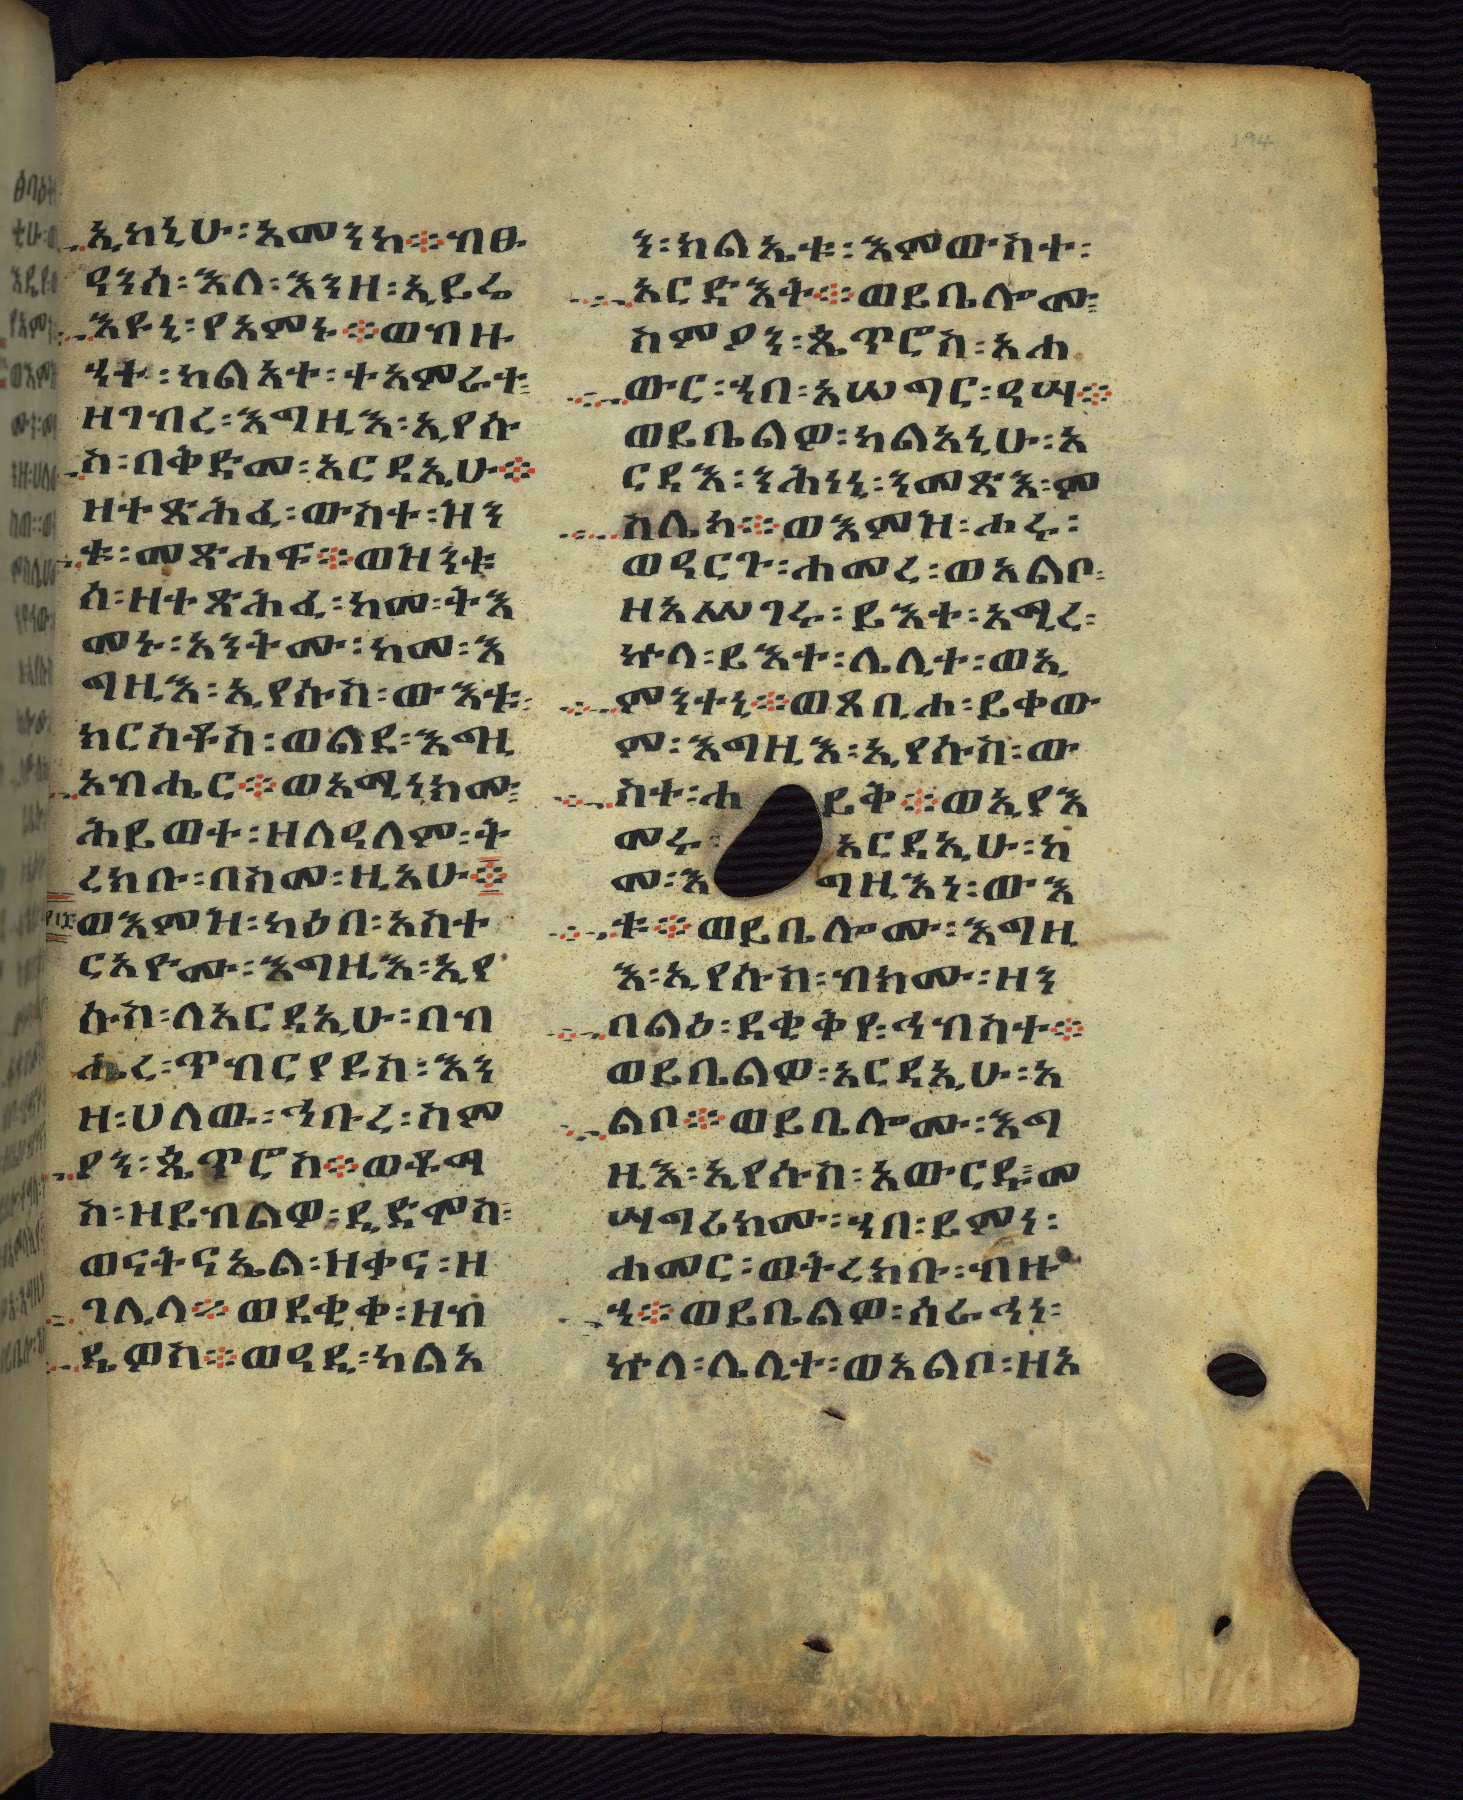 ኢክኒሁ፡አመንከ፨ብፁ
ዓንሰ፡እለ፡እንዘ፡ኢይሬ
እዩኒ፡የአምኑ፨ወብዙ
ኅት፡ካልእተ፡ተአምራተ፡
ዘገብረ፡እግዚእ፡ኢየሱ
ስ፡በቅድመ፡አርዳኢሁ፨
ዘተጽሕፈ፡ውስተ፡ዝን
ቱ፡መጽሐፍ፨ወዝንቱ
ሰ፡ዘተጽሕፈ፡ከመ፡ትእ
መኑ፡አንትሙ፡ከመ፡እ
ግዚእ፡ኢየሱስ፡ውእቱ፡
ክርስቶስ፡ወልደ፡እግዚ
አብሔር፨ወአሚነክሙ፡
ሕይወተ፡ዘለዓለም፡ት
ረክቡ፡በስመ፡ዚአሁ፨
ወእምዝ፡ካዕበ፡አስተ
ርአዮሙ፡እግዚእ፡ኢየ
ሱስ፡ለአርዳኢሁ፡በብ
ሔረ፡ጥብርያዶስ፡እን
ዘ፡ሀለዉ፡ኅቡረ፡ስም
ዖን፡ጴጥሮስ፨ወቶማ
ስ፡ዘይብልዎ፡ዲድሞስ፡
ወናትናኤል፡ዘቃና፡ዘ
ገሊላ፨ወደቂቀ፡ዘብ
ዴዎስ፨ወዓዲ፡ካልኣ
ን፡ክልኤቱ፡እምውስተ፡
አርድእት፨ወይቤሎሙ፡
ስምዖን፡ጴጥሮስ፡አሐ
ውር፡ኀበ፡አሠግር፡ዓሣ፨
ወይቤልዎ፡ካልኣኒሁ፡አ
ርዳእ፡ንሕነኒ፡ንመጽእ፡ም
ስሌከ፨ወእምዝ፡ሐሩ፡
ወዓርጉ፡ሐመረ፡ወአልቦ፡
ዘአሥገሩ፡ይእተ፡አሚረ፡
ኵላ፡ይእተ፡ሌሊተ፡ወኢ
ምንተኒ፨ወጸቢሖ፡ይቀው
ም፡እግዚእ፡ኢየሱስ፡ው
ስተ፡ሐይቅ፨ወኢያእ
መሩ፡አርዳኢሁ፡ከ
መ፡እግዚእነ፡ውእ
ቱ፨ወይቤሎሙ፡እግዚ
እ፡ኢየሱስ፡ብክሙ፡ዘን
በልዕ፡ደቂቅየ፡ኅብስተ፨
ወይቤልዎ፡አርዳኢሁ፡አ
ልቦ፨ወይቤሎሙ፡እግ
ዚእ፡ኢየሱስ፡አውርዱ፡መ
ሣግሪክሙ፡ኀበ፡ይምነ፡
ሐመር፡ወትረክቡ፡ብዙ
ኀ፨ወይቤልዎ፡ሰራኅነ፡
ኵላ፡ሌሊተ፡ወአልቦ፡ዘአ